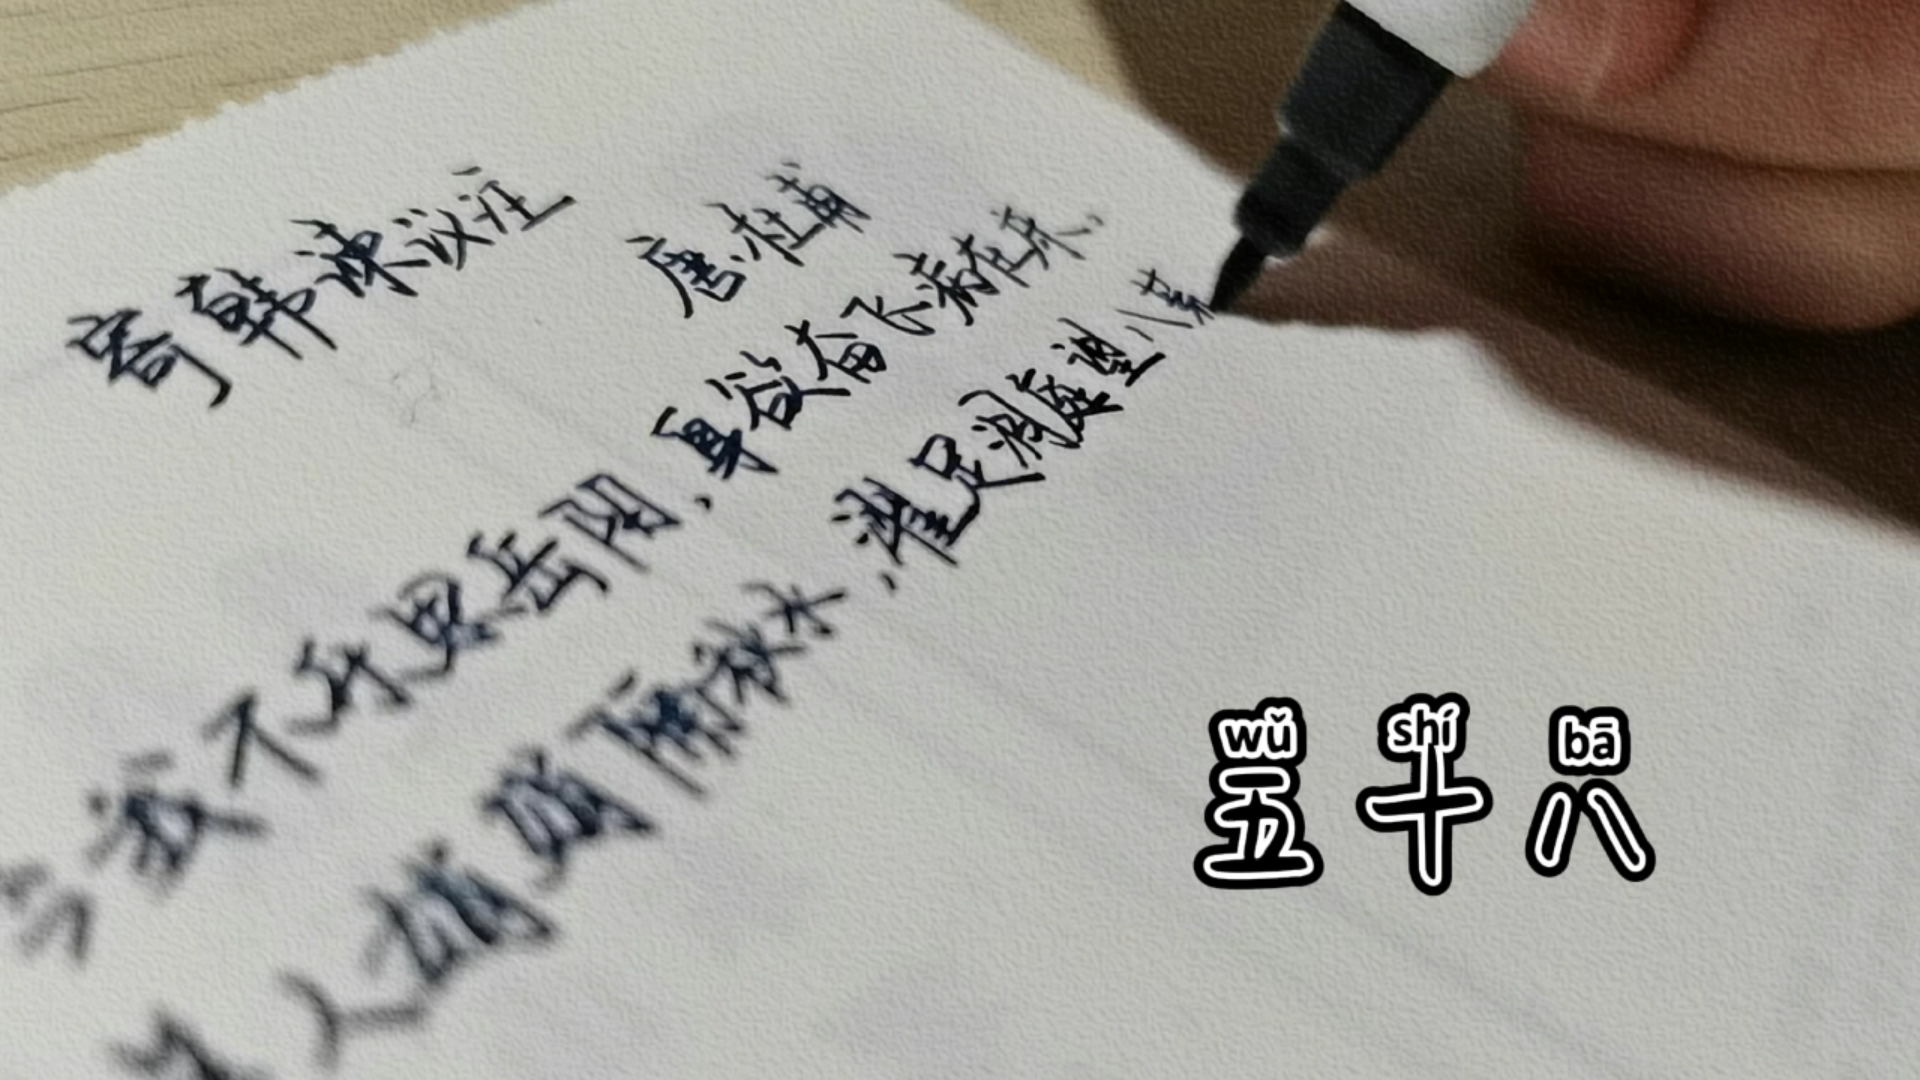 寄韩谏议注
唐·杜甫
今我不乐思岳阳，身欲奋飞病在床。
美人娟娟隔秋水，濯足洞庭望八荒
wǔ shí bā
五十八